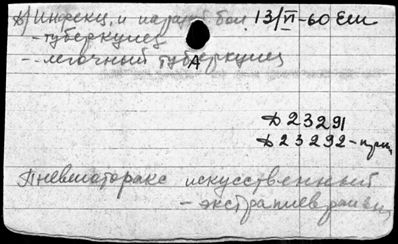 в) Инфекц. и параз. бол. 13/VI-60 Еш
- туберкулез
-- легочный туберкулез
А
Д 23291
Д 23292-
Пневмоторакс искусственный
- экстраплевральн